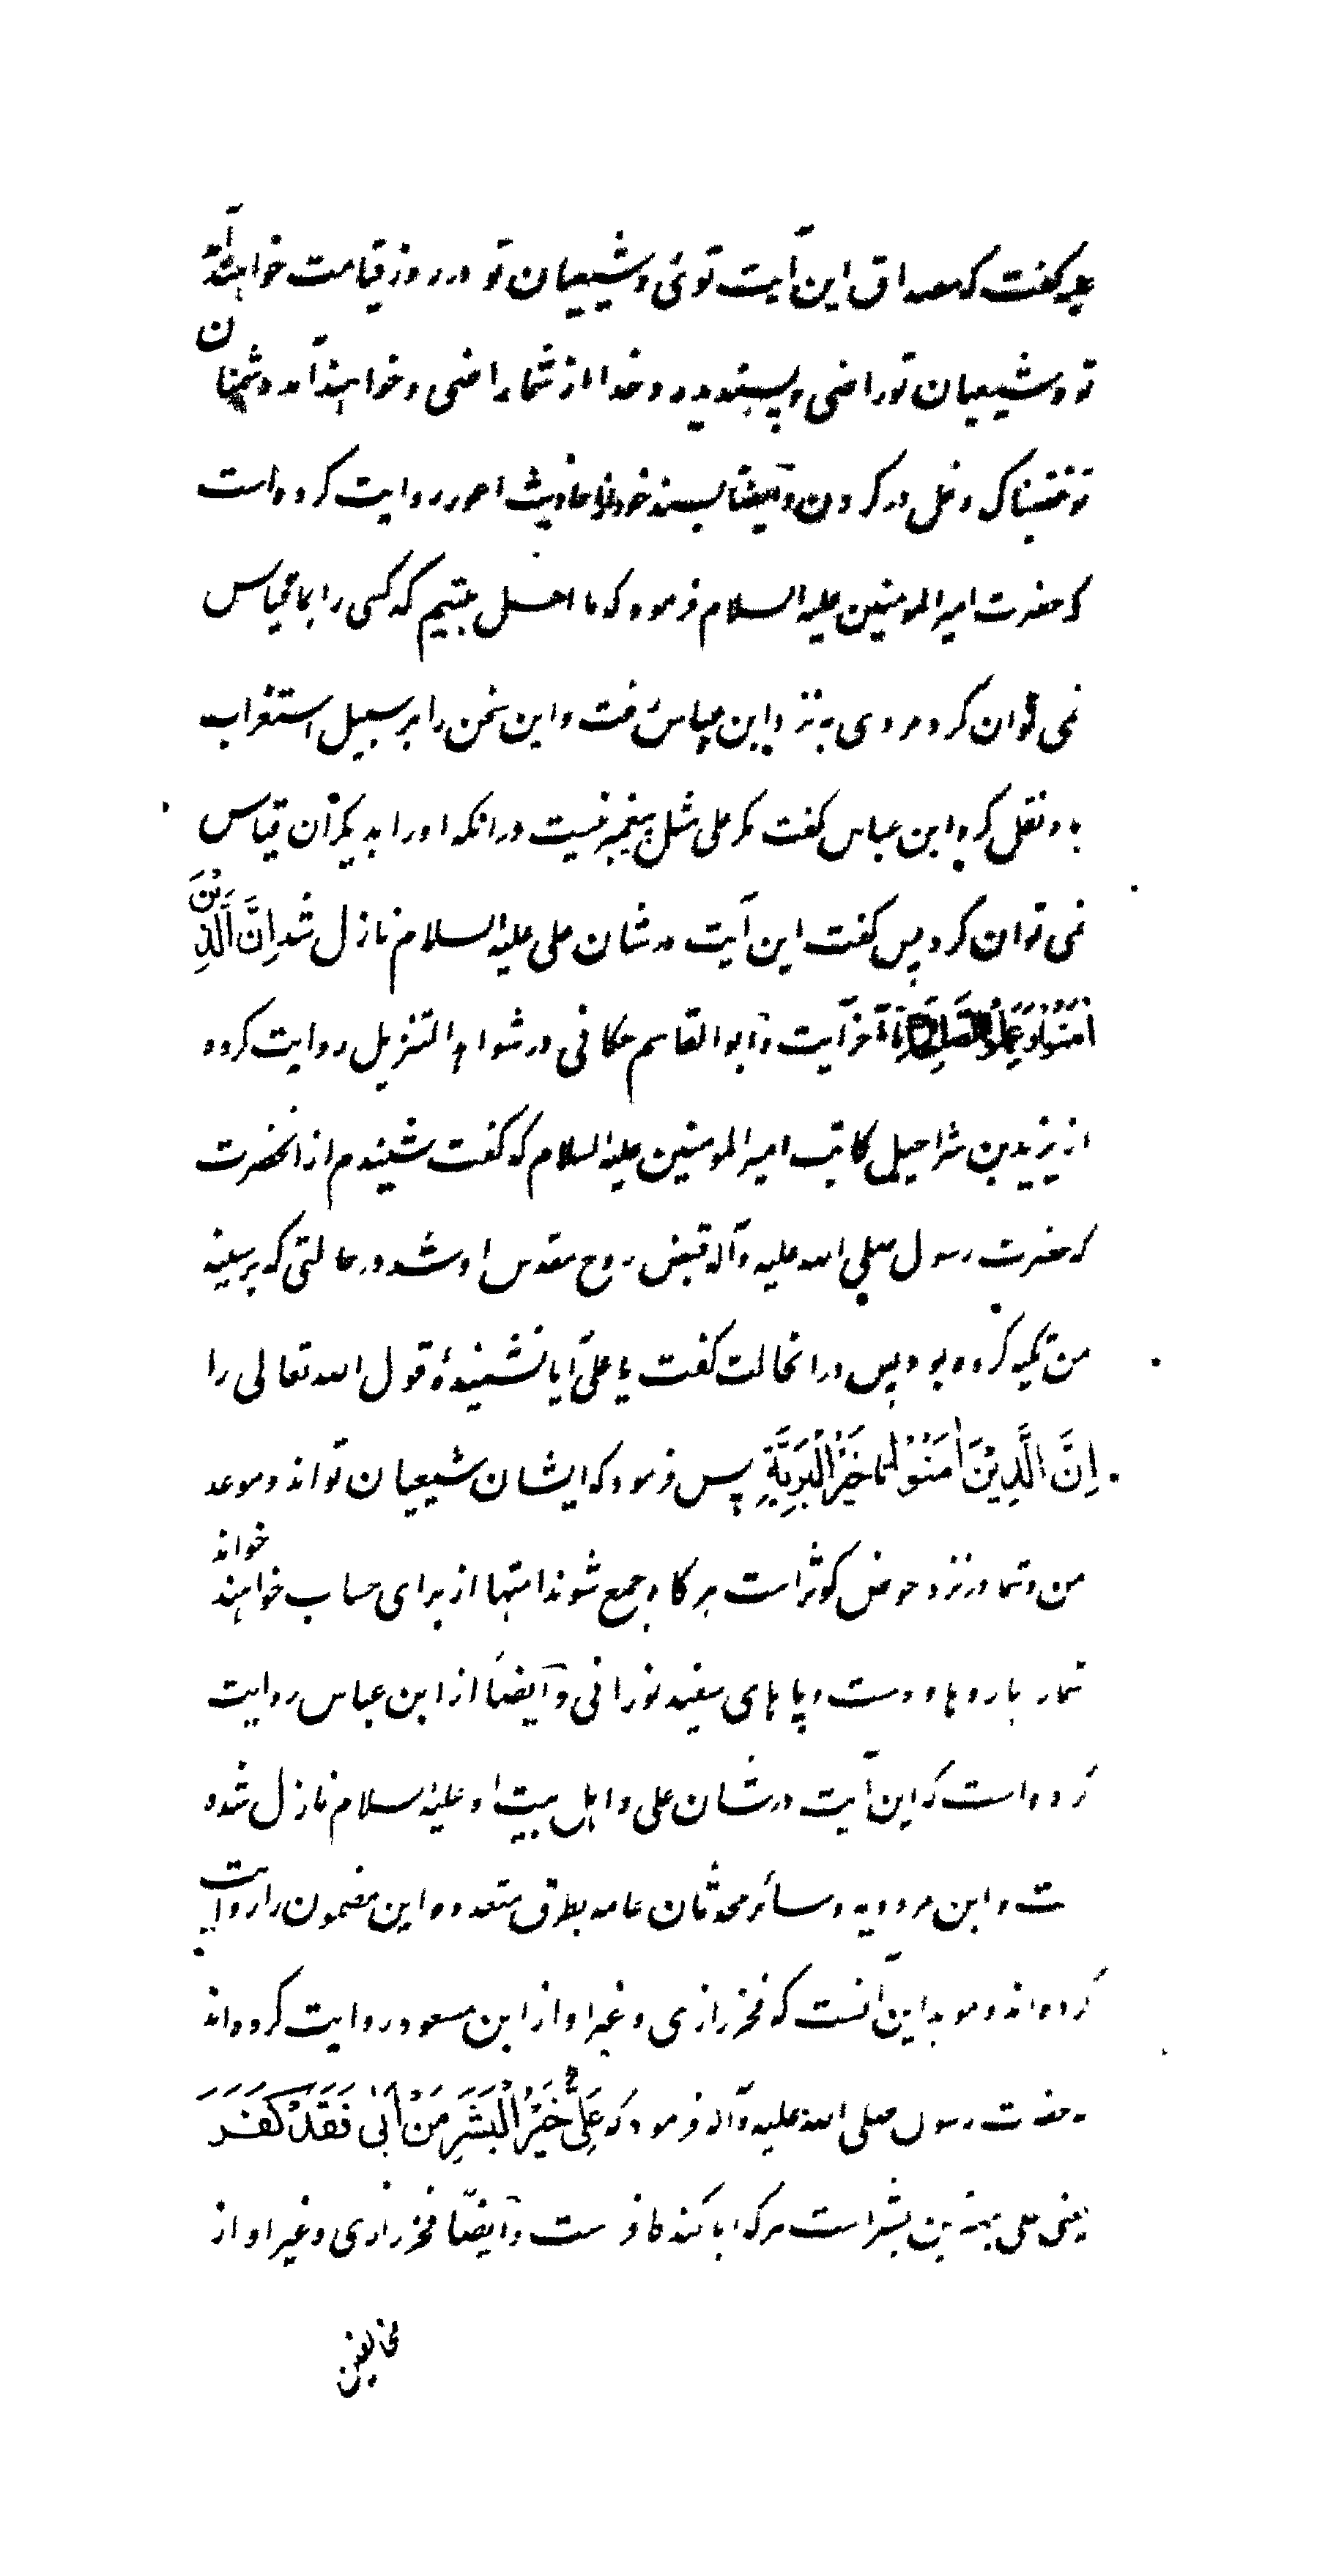 علیه گفت که مصداق این آیت توئی و شیعیان تو در روز قیامت خواهند آمد
تو و شیعیان تو راضی و پسندیده و خدا از شما راضی و خواهند آمد دشمنان
تو خشمناک و غل در گردن و ایضا بسند خود از حادیث اعور روایت کرده است
که حضرت امیر المومنین علیه السلام فرمود که ما اهل بیتیم که کسی را بما قیاس
نمی توان کرد مردی به نزد ابن عباس رفت و این سخن را بر سبیل استغراب
با و نقل کرد ابن عباس گفت مگر علی مثل پیغمبر نیست در انکه او را بدیگران قیاس
نمی توان کرد پس گفت این آیت در شان علی علیه السلام نازل شد اِنَّ الَّذِیْنَ
اٰمَنُوْا وَعَمِلُوا الصّٰلِحٰتِ تا آخر آیت و ابو القاسم حکانی در شواهد التنزیل روایت کرده
از یزید بن شراحیل کاتب امیر المومنین علیه السلام که گفت شنیدم از انحضرت
که حضرت رسول صلی الله علیه و آله قبض روح مقدس او شد در حالتی که بر سینه
من تکیه کرده بود پس در انحالت گفت یا علی آیا نشنیدهٔ قول الله تعالی را
اِنَّ الَّذِیْنَ اٰمَنُوْا تا خَیْرُ الْبَرِیَّةِ پس فرمود که ایشان شیعیان تو اند و موعد
من و شما در نزد حوض کوثر است هر گاه جمع شوند امتها از برای حساب خواهند خواند
شمار با رو ها و دست و پا های سفید نورانی و ایضاً از ابن عباس روایت
کرده است که این آیت در شان علی و اهل بیت او علیه سلام نازل شده
ست و ابن مردویه و سائر محدثان عامه بطرق متعدده این مضمون را روایت
کرده اند و موید این آنست که فخر رازی و غیر او از ابن مسعود روایت کرده اند
حضرت رسول صلی الله علیه و آله فرمود که عَلِیٌّ خَیْرُ الْبَشَرِ مَنْ اَبٰی فَقَدْ کَفَرَ
یعنی علی بهترین بشر است هر که ابا کند کافر ست و ایضاً فخر رازی و غیر او از
مخالفین